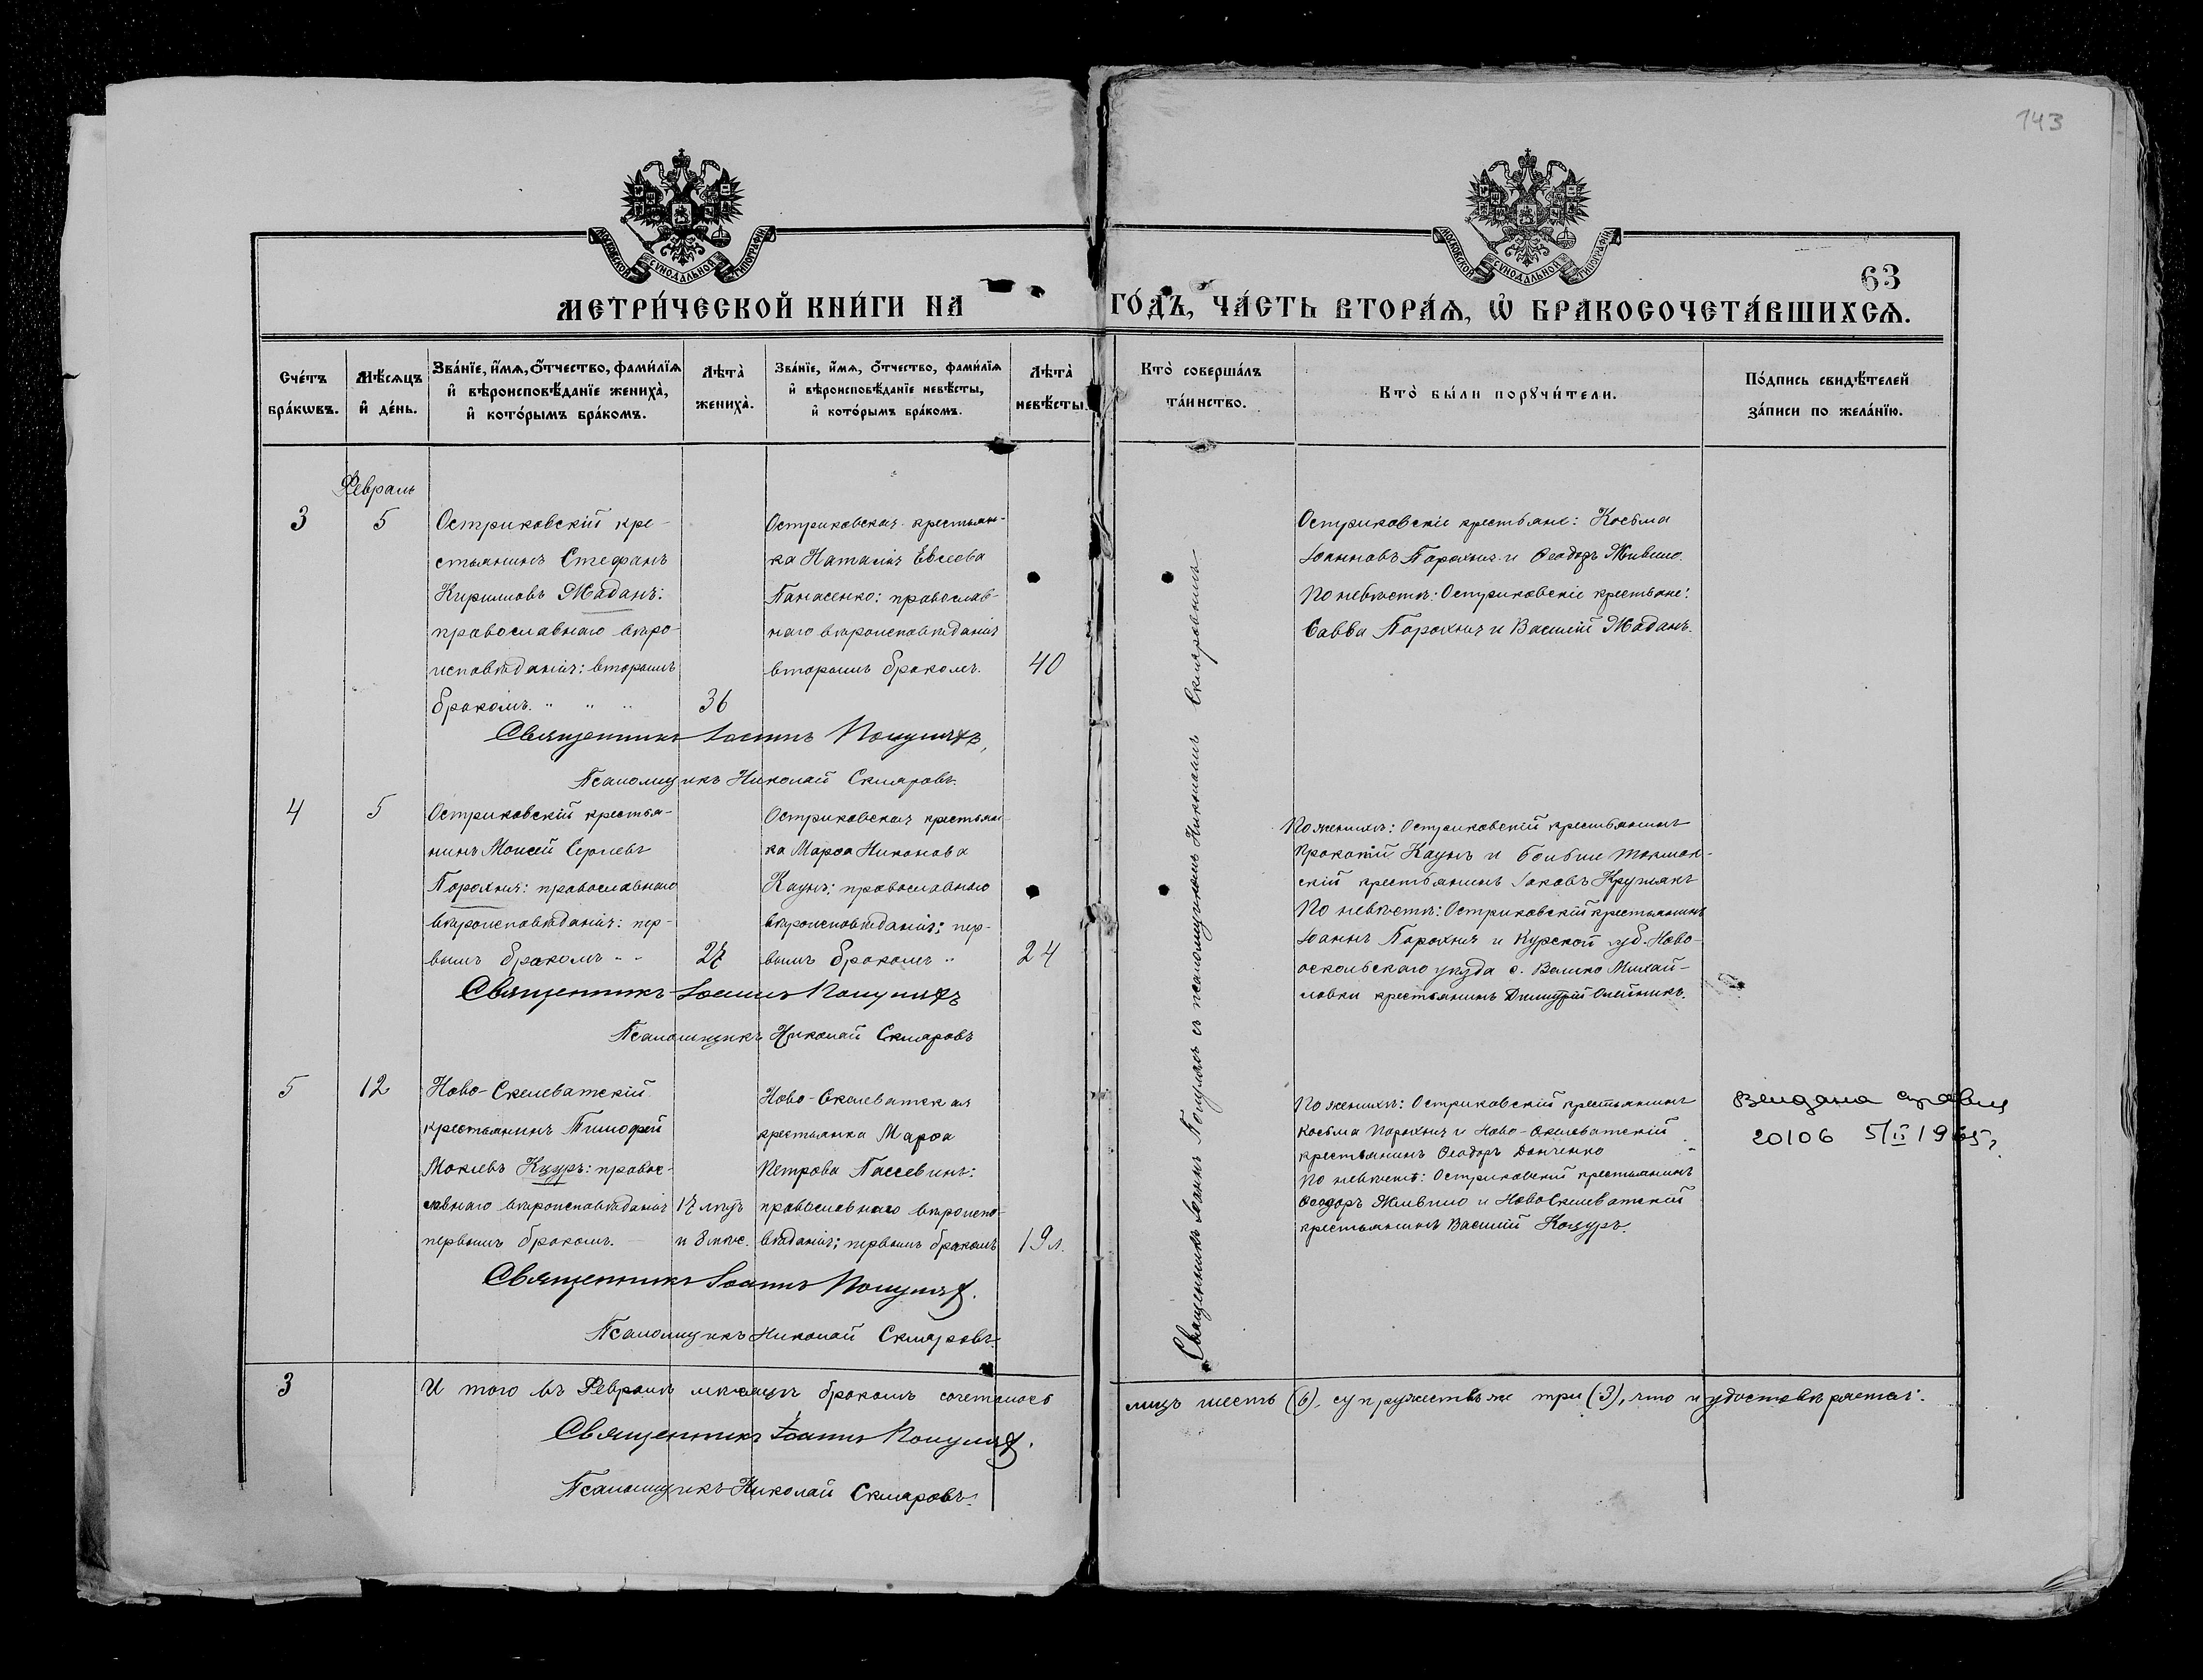 143
МОСКОВСКОЙ СУНОДАЛЬНОЙ ТИПОГРАФІИ
МОСКОВСКОЙ СУНОДАЛЬНОЙ ТИПОГРАФІИ
63
МЕТРИ́ЧЕСКОЙ КНИ́ГИ НА ГО́ДЪ, ЧА́СТЬ ВТОРА́Ѧ, Ѽ БРАКОСОЧЕТА́ВШИХСѦ.
Сче́тъ
бра́кѡвъ.
Мѣ́сяцъ
и҆ де́нь.
Зва́нїе, и҆́мѧ, ѻ҆́тчество, фами́лїѧ
и҆ вѣроисповѣ́данїе жениха̀,
и҆ кото́рымъ бра́комъ.
Лѣта̀
жениха̀.
Зва́нїе, и҆́мѧ, ѻ҆́тчество, фами́лїѧ
и҆ вѣроисповѣ́данїе невѣ́сты,
и҆ кото́рымъ бра́комъ.
Лѣта̀
невѣ́сты.
Кто̀ соверша́лъ
та́инство.
Кто̀ бы́ли порꙋчи́тели.
По́дпись свидѣ́телей
за́писи по жела́нїю.
Февраль
3
5
Остриковскій кре-
стьянинъ Стефанъ
Кирилловъ Маданъ:
православнаго вѣро-
исповѣданія: вторымъ
бракомъ. " " "
36
Остриковская крестьян-
ка Наталія Евсеева
Панасенко: православ-
наго вѣроисповѣданія
вторымъ бракомъ.
40
Остриковскіе крестьяне: Косьма
Іоанновъ Порохня и Ѳеодоръ Живило.
По невѣстѣ: Остриковскіе крестьяне:
Савва Порохня и Василій Маданъ.
Священникъ Іоаннъ
Псаломщикъ Николай Скляровъ.
4
5
Остриковскій крестья-
нинъ Моисей Сергіевъ
Порохня: православнаго
вѣроисповѣданія: пер-
вымъ бракомъ " "
27
Остриковская крестьян-
ка Марѳа Никонова
Каунъ; православнаго
вѣроисповѣданія; пер-
вымъ бракомъ "
24
По женихѣ: Остриковскій крестьянинъ
Прокопій Каунъ и Больше Токмак-
скій крестьянинъ Іаковъ
По невѣстѣ: Остриковскій крестьянинъ
Іоаннъ Порохня и Курской губ. Ново-
оскольскаго уѣзда с. Михай-
ловки крестьянинъ Димитрій Олейникъ.
Священникъ Іоаннъ
Псаломщикъ Николай Скляровъ
5
12
Ново-Скелеватскій
крестьянинъ Тимофей
Мокіевъ Куцуръ: правос-
лавнаго вѣроисповѣданія
первымъ бракомъ.
17 лѣтъ
и 8 мѣс.
Ново-Скелеватская
крестьянка Марѳа
Петрова
православнаго вѣроиспо-
вѣданія; первымъ бракомъ
19 л.
По женихѣ: Остриковскій крестьянинъ
Косьма Порохня и Ново-Скелеватскій
крестьянинъ Ѳеодоръ Донченко
По невѣстѣ: Остриковскій крестьянинъ
Ѳеодоръ Живило и Ново Скелеватскій
крестьянинъ Василій Коцуръ.
20106 5/II 1965 г.
Священникъ Іоаннъ
Псаломщикъ Николай Скляровъ.
Священникъ Іоаннъ съ псаломщикомъ Николаемъ Скляровымъ
3
И того въ Февралѣ мѣсяцѣ бракомъ сочеталось лицъ шесть (6), супружествъ же три (3), что и удостовѣряется:
Священникъ Іоаннъ
Псаломщикъ Николай Скляровъ.